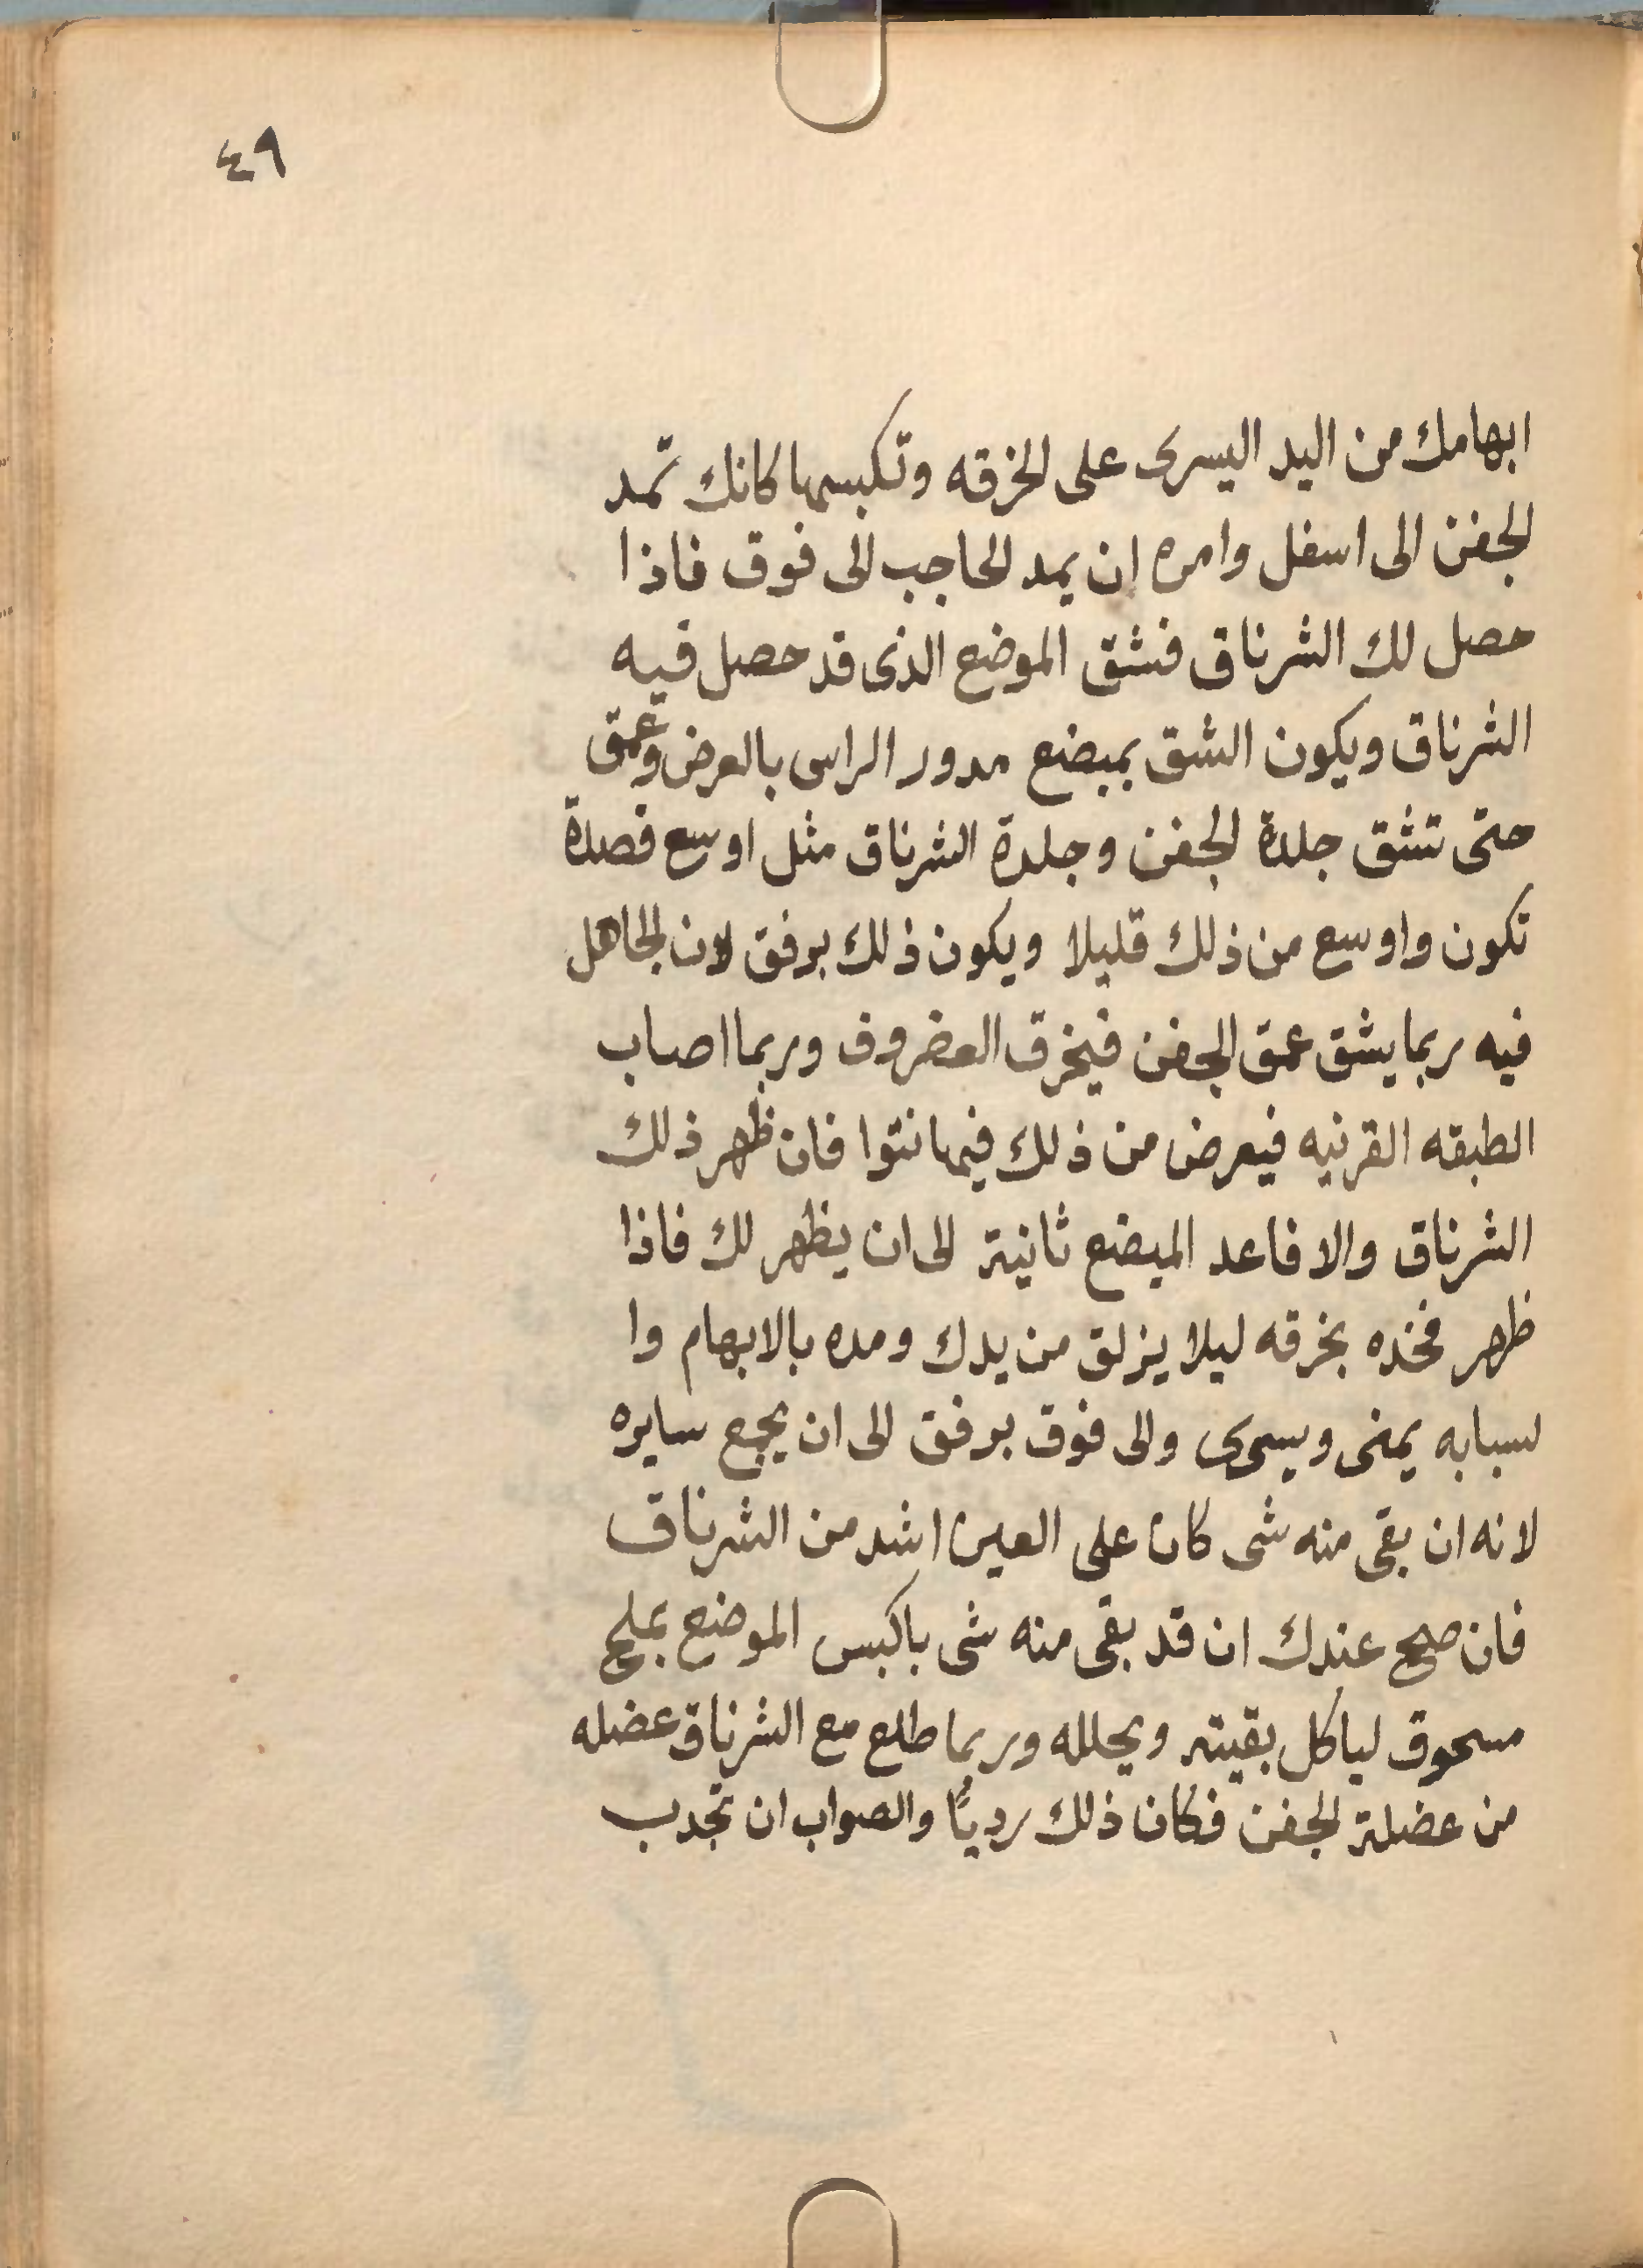 ٤٩
ابهامك من اليد اليسرى على الخرقه وتكبسها كانك تمد
الجفن الى اسفل وامره ان يمد الحاجب الى فوق فاذا
حصل لك الشرناق فشق الموضع الذى قد حصل فيه
الشرناق ويكون الشق بمبضع مدور الراس بالعرض وعمق
حتى تشق جلدة الجفن وجلدة الشرناق مثل اوسع فصدة
تكون واوسع من ذلك قليلا ويكون ذلك برفق لان الجاهل
فيه ربما يشق عمق الجفن فيخرق العضروف وربما اصاب
الطبقه القرنيه فيعرض من ذلك فيها نتوا فان ظهر ذلك
الشرناق والا فاعد المبضع ثانية الى ان يظهر لك فاذا
ظهر فخذه بخرقه ليلا يزلق من يدك ومده بالابهام وا
لسبابه يمنى ويسرى والى فوق برفق الى ان يجمع سايره
لانه ان بقى منه شى كان على العين اشد من الشرناق
فان صح عندك ان قد بقى منه شى باكبس الموضع بملح
مسحوق لياكل بقيته ويحلله وربما طلع مع الشرناق عضله
من عضلة الجفن فكان ذلك رديًا والصواب ان تجدب